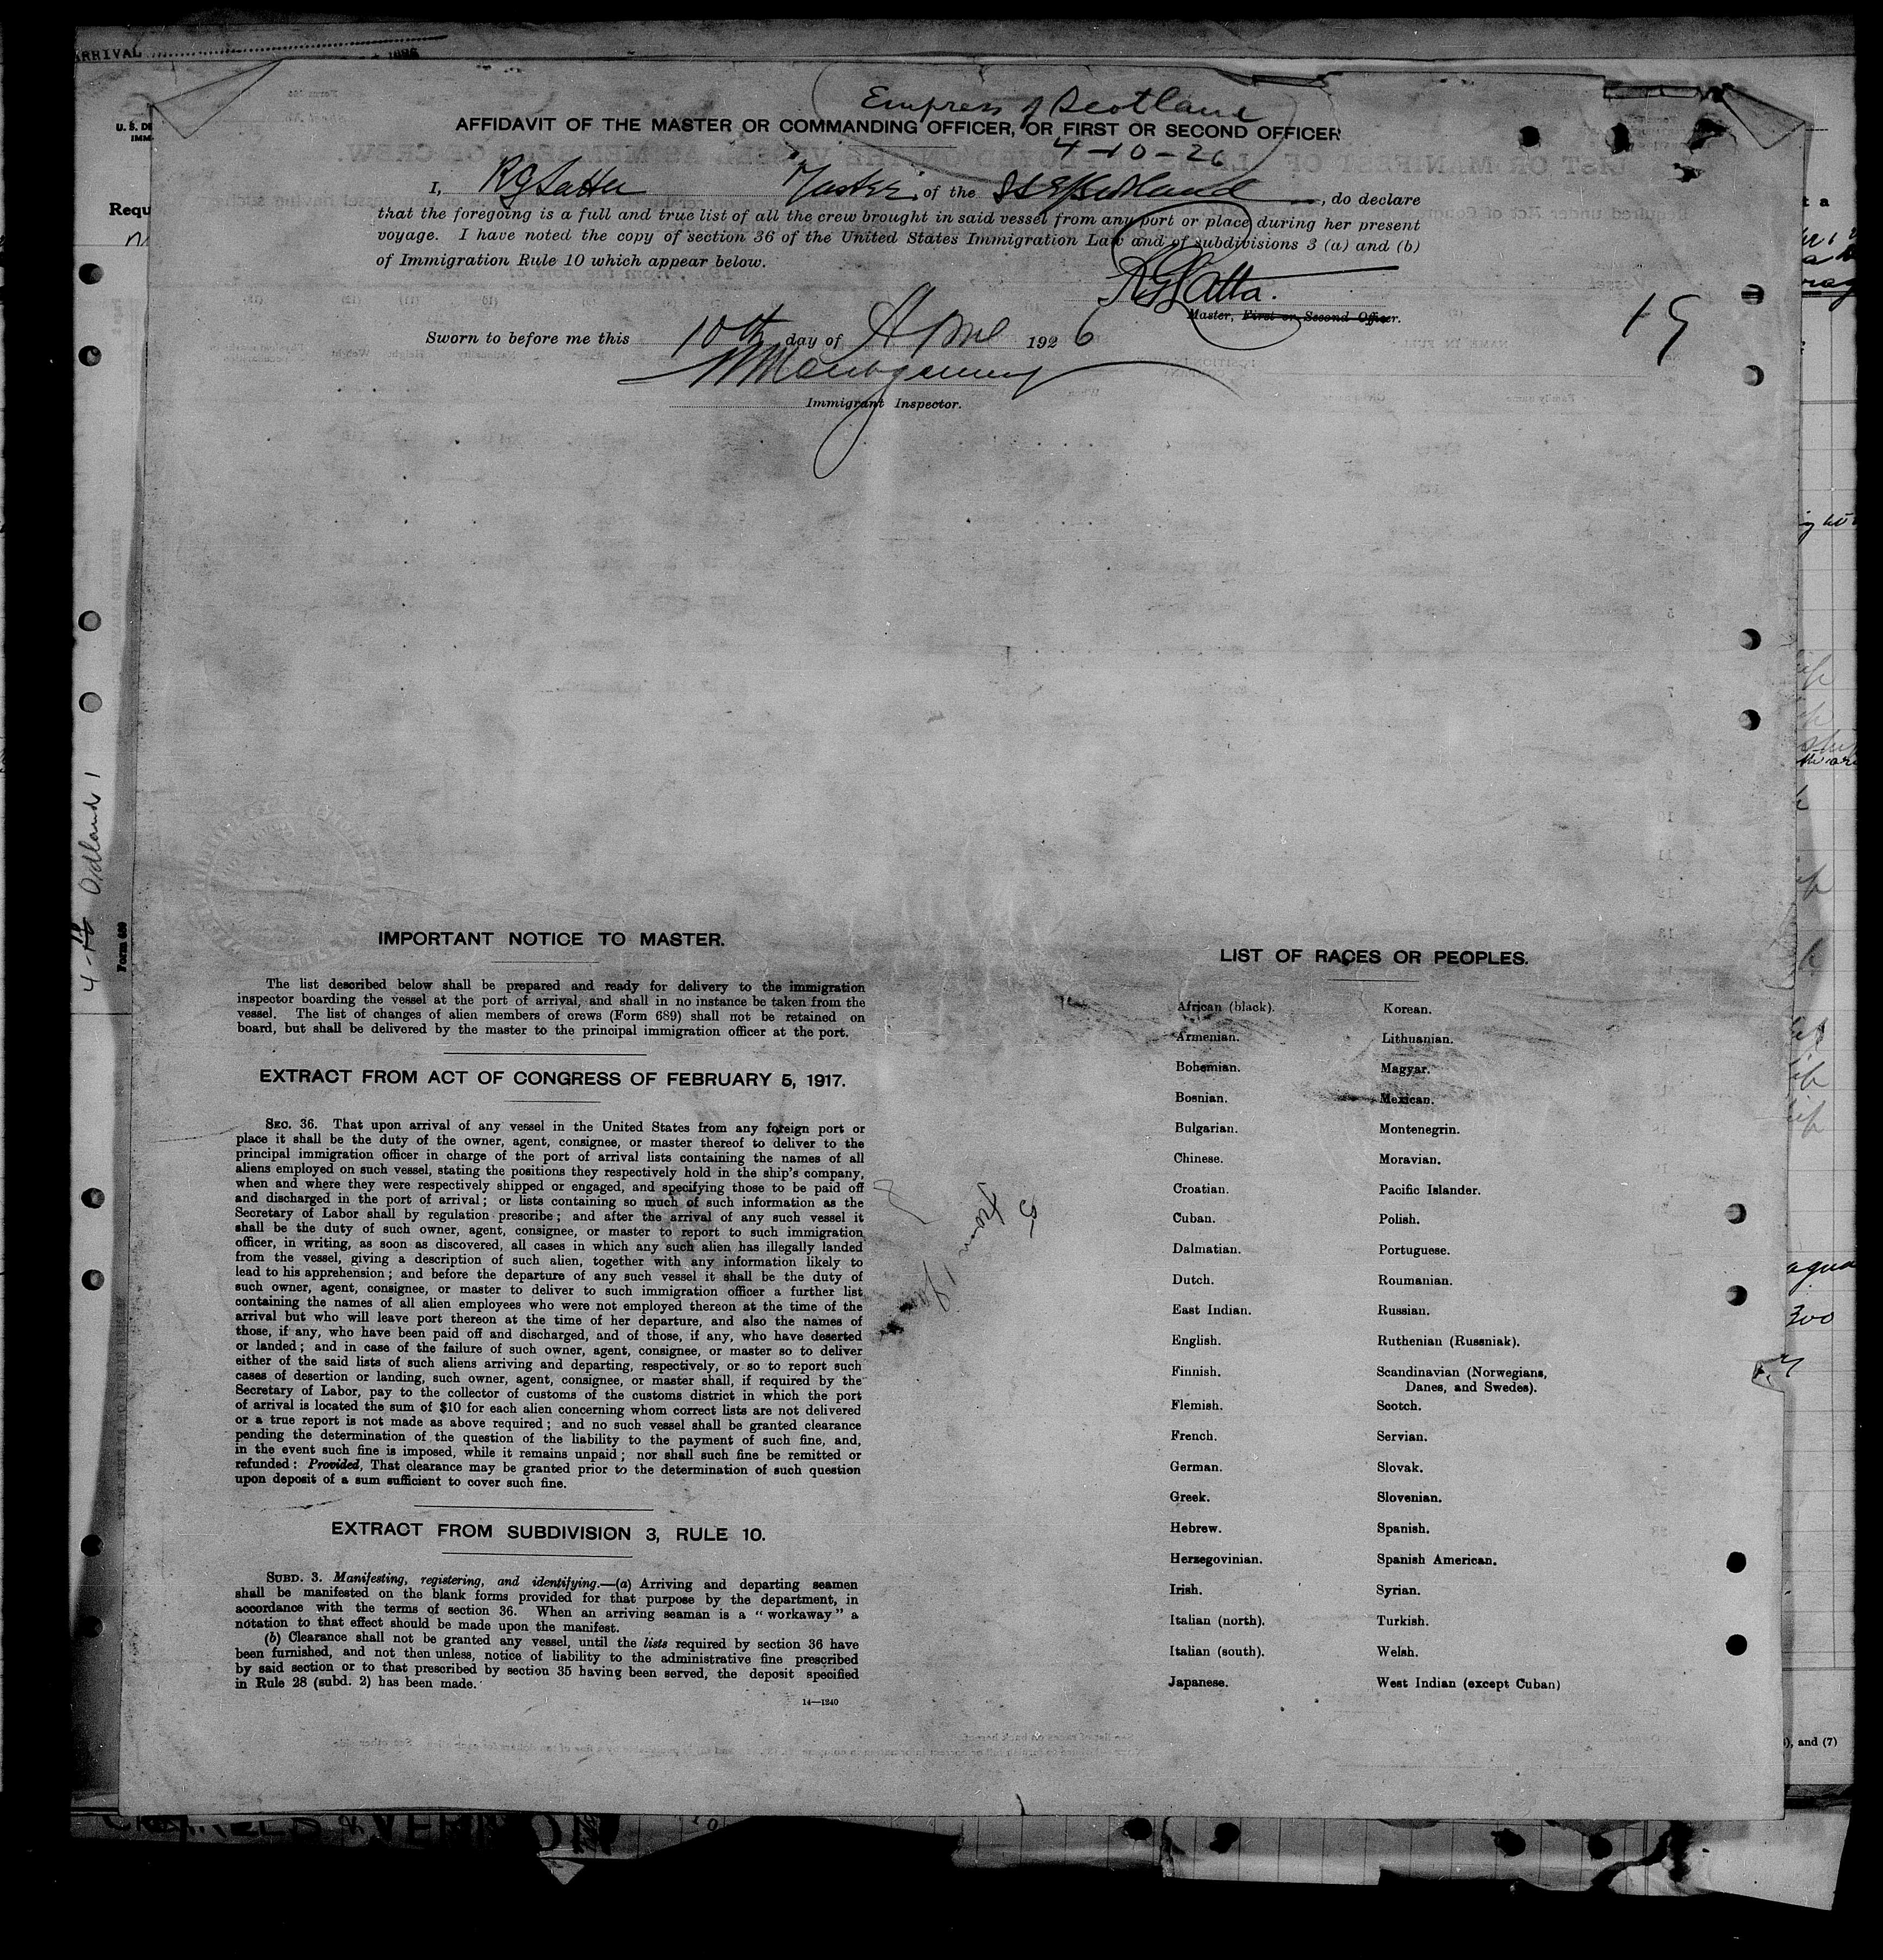 ARRIVAL
Empress of Scotland
AFFIDAVIT OF THE MASTER OR COMMANDING OFFICER, OR FIRST OR SECOND OFFICER
4-10-26
I, RG Latta Master, of the SS E/Scotland, do declare
that the foregoing is a full and true list of all the crew brought in said vessel from any port or place during her present
voyage. I have noted the copy of section 36 of the United States Immigration Law and of subdivisions 3 (a) and (b)
of Immigration Rule 10 which appear below.
RG Latta.
Master, First or Second Officer.
19
Sworn to before me this 10th day of April 1926
Montgomery
Immigrant Inspector.
IMPORTANT NOTICE TO MASTER.
The list described below shall be prepared and ready for delivery to the immigration
inspector boarding the vessel at the port of arrival, and shall in no instance be taken from the
vessel. The list of changes of alien members of crews (Form 689) shall not be retained on
board, but shall be delivered by the master to the principal immigration officer at the port.
EXTRACT FROM ACT OF CONGRESS OF FEBRUARY 5, 1917.
SEC. 36. That upon arrival of any vessel in the United States from any foreign port or
place it shall be the duty of the owner, agent, consignee, or master thereof to deliver to the
principal immigration officer in charge of the port of arrival lists containing the names of all
aliens employed on such vessel, stating the positions they respectively hold in the ship's company,
when and where they were respectively shipped or engaged, and specifying those to be paid off
and discharged in the port of arrival; or lists containing so much of such information as the
Secretary of Labor shall by regulation prescribe; and after the arrival of any such vessel it
shall be the duty of such owner, agent, consignee, or master to report to such immigration
officer, in writing, as soon as discovered, all cases in which any such alien has illegally landed
from the vessel, giving a description of such alien, together with any information likely to
lead to his apprehension; and before the departure of any such vessel it shall be the duty of
such owner, agent, consignee, or master to deliver to such immigration officer a further list
containing the names of all alien employees who were not employed thereon at the time of the
arrival but who will leave port thereon at the time of her departure, and also the names of
those, if any, who have been paid off and discharged, and of those, if any, who have deserted
or landed; and in case of the failure of such owner, agent, consignee, or master so to deliver
either of the said lists of such aliens arriving and departing, respectively, or so to report such
cases of desertion or landing, such owner, agent, consignee, or master shall, if required by the
Secretary of Labor, pay to the collector of customs of the customs district in which the port
of arrival is located the sum of $10 for each alien concerning whom correct lists are not delivered
or a true report is not made as above required; and no such vessel shall be granted clearance
pending the determination of the question of the liability to the payment of such fine, and,
in the event such fine is imposed, while it remains unpaid; nor shall such fine be remitted or
refunded: Provided, That clearance may be granted prior to the determination of such question
upon deposit of a sum sufficient to cover such fine.
EXTRACT FROM SUBDIVISION 3, RULE 10.
SUBD. 3. Manifesting, registering, and identifying.—(a) Arriving and departing seamen
shall be manifested on the blank forms provided for that purpose by the department, in
accordance with the terms of section 36. When an arriving seaman is a "workaway" a
notation to that effect should be made upon the manifest.
(b) Clearance shall not be granted any vessel, until the lists required by section 36 have
been furnished, and not then unless, notice of liability to the administrative fine prescribed
by said section or to that prescribed by section 35 having been served, the deposit specified
in Rule 28 (subd. 2) has been made.
14—1240
LIST OF RACES OR PEOPLES.
African (black).
Armenian.
Bohemian.
Bosnian.
Bulgarian.
Chinese.
Croatian.
Cuban.
Dalmatian.
Dutch.
East Indian.
English.
Finnish.
Flemish.
French.
German.
Greek.
Hebrew.
Herzegovinian.
Irish.
Italian (north).
Italian (south).
Japanese.
Korean.
Lithuanian.
Magyar.
Mexican.
Montenegrin.
Moravian.
Pacific Islander.
Polish.
Portuguese.
Roumanian.
Russian.
Ruthenian (Russniak).
Scandinavian (Norwegians,
Danes, and Swedes).
Scotch.
Servian.
Slovak.
Slovenian.
Spanish.
Spanish American.
Syrian.
Turkish.
Welsh.
West Indian (except Cuban)
Form 689
300
, and (7)